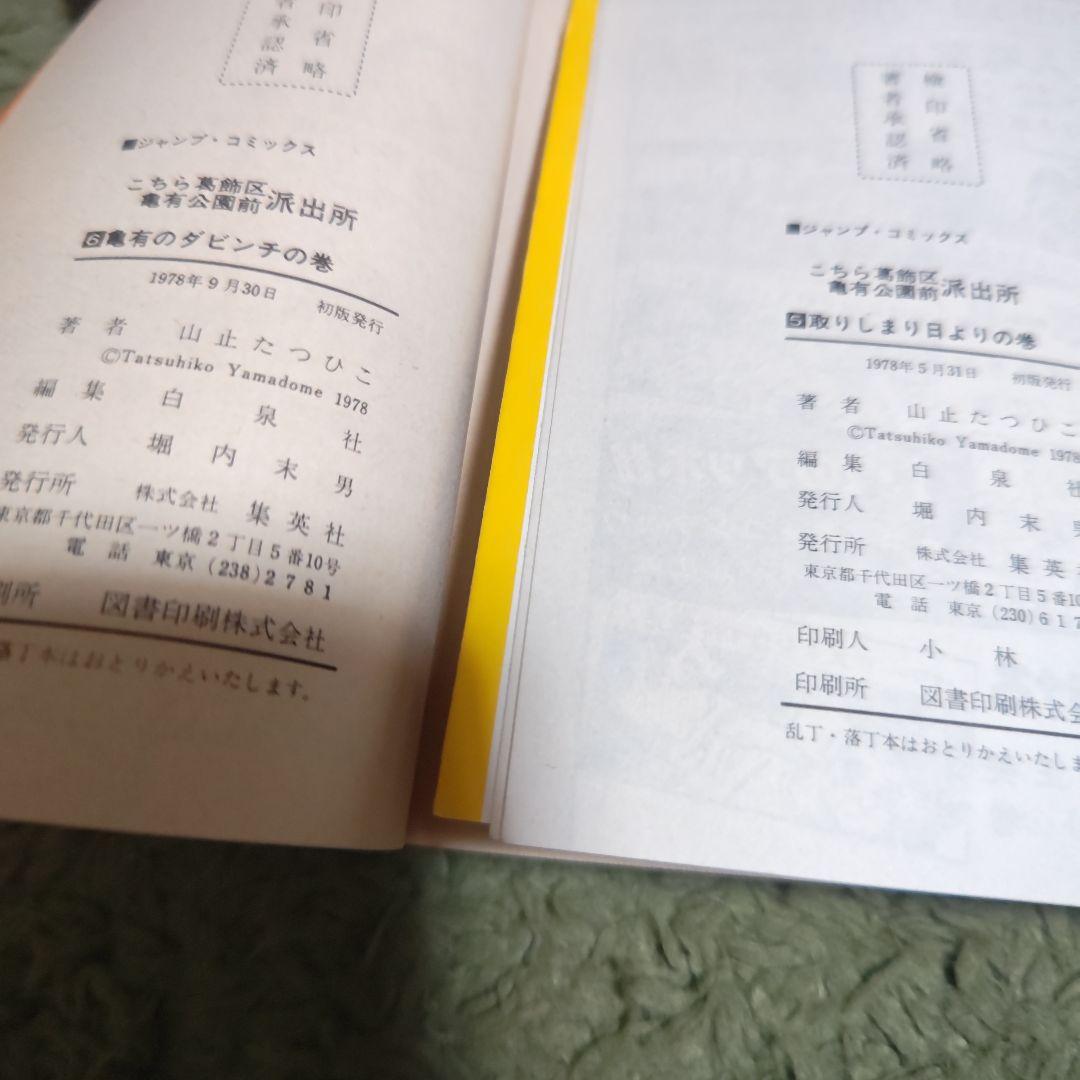 印省略
者承認済
■ジャンプ・コミックス
こちら葛飾区
亀有公園前派出所
6亀有のダビンチの巻
1978年9月30日 初版発行
著者 山止たつひこ
©Tatsuhiko Yamadome 1978
編集 白泉社
発行人 堀内末男
発行所 株式会社 集英社
東京都千代田区一ツ橋2丁目5番10号
電話 東京 (238) 2781
刷所 図書印刷株式会社
落丁本はおとりかえいたします。
検印省略
著者承認済
■ジャンプ・コミックス
こちら葛飾区
亀有公園前派出所
5取りしまり日よりの巻
1978年5月31日 初版発行
著者 山止たつひこ
©Tatsuhiko Yamadome 1978
編集 白泉社
発行人 堀内末
発行所 株式会社 集英
東京都千代田区一ツ橋2丁目5番10
電話 東京 (230) 617
印刷人 小林
印刷所 図書印刷株式会
乱丁・落丁本はおとりかえいたしま